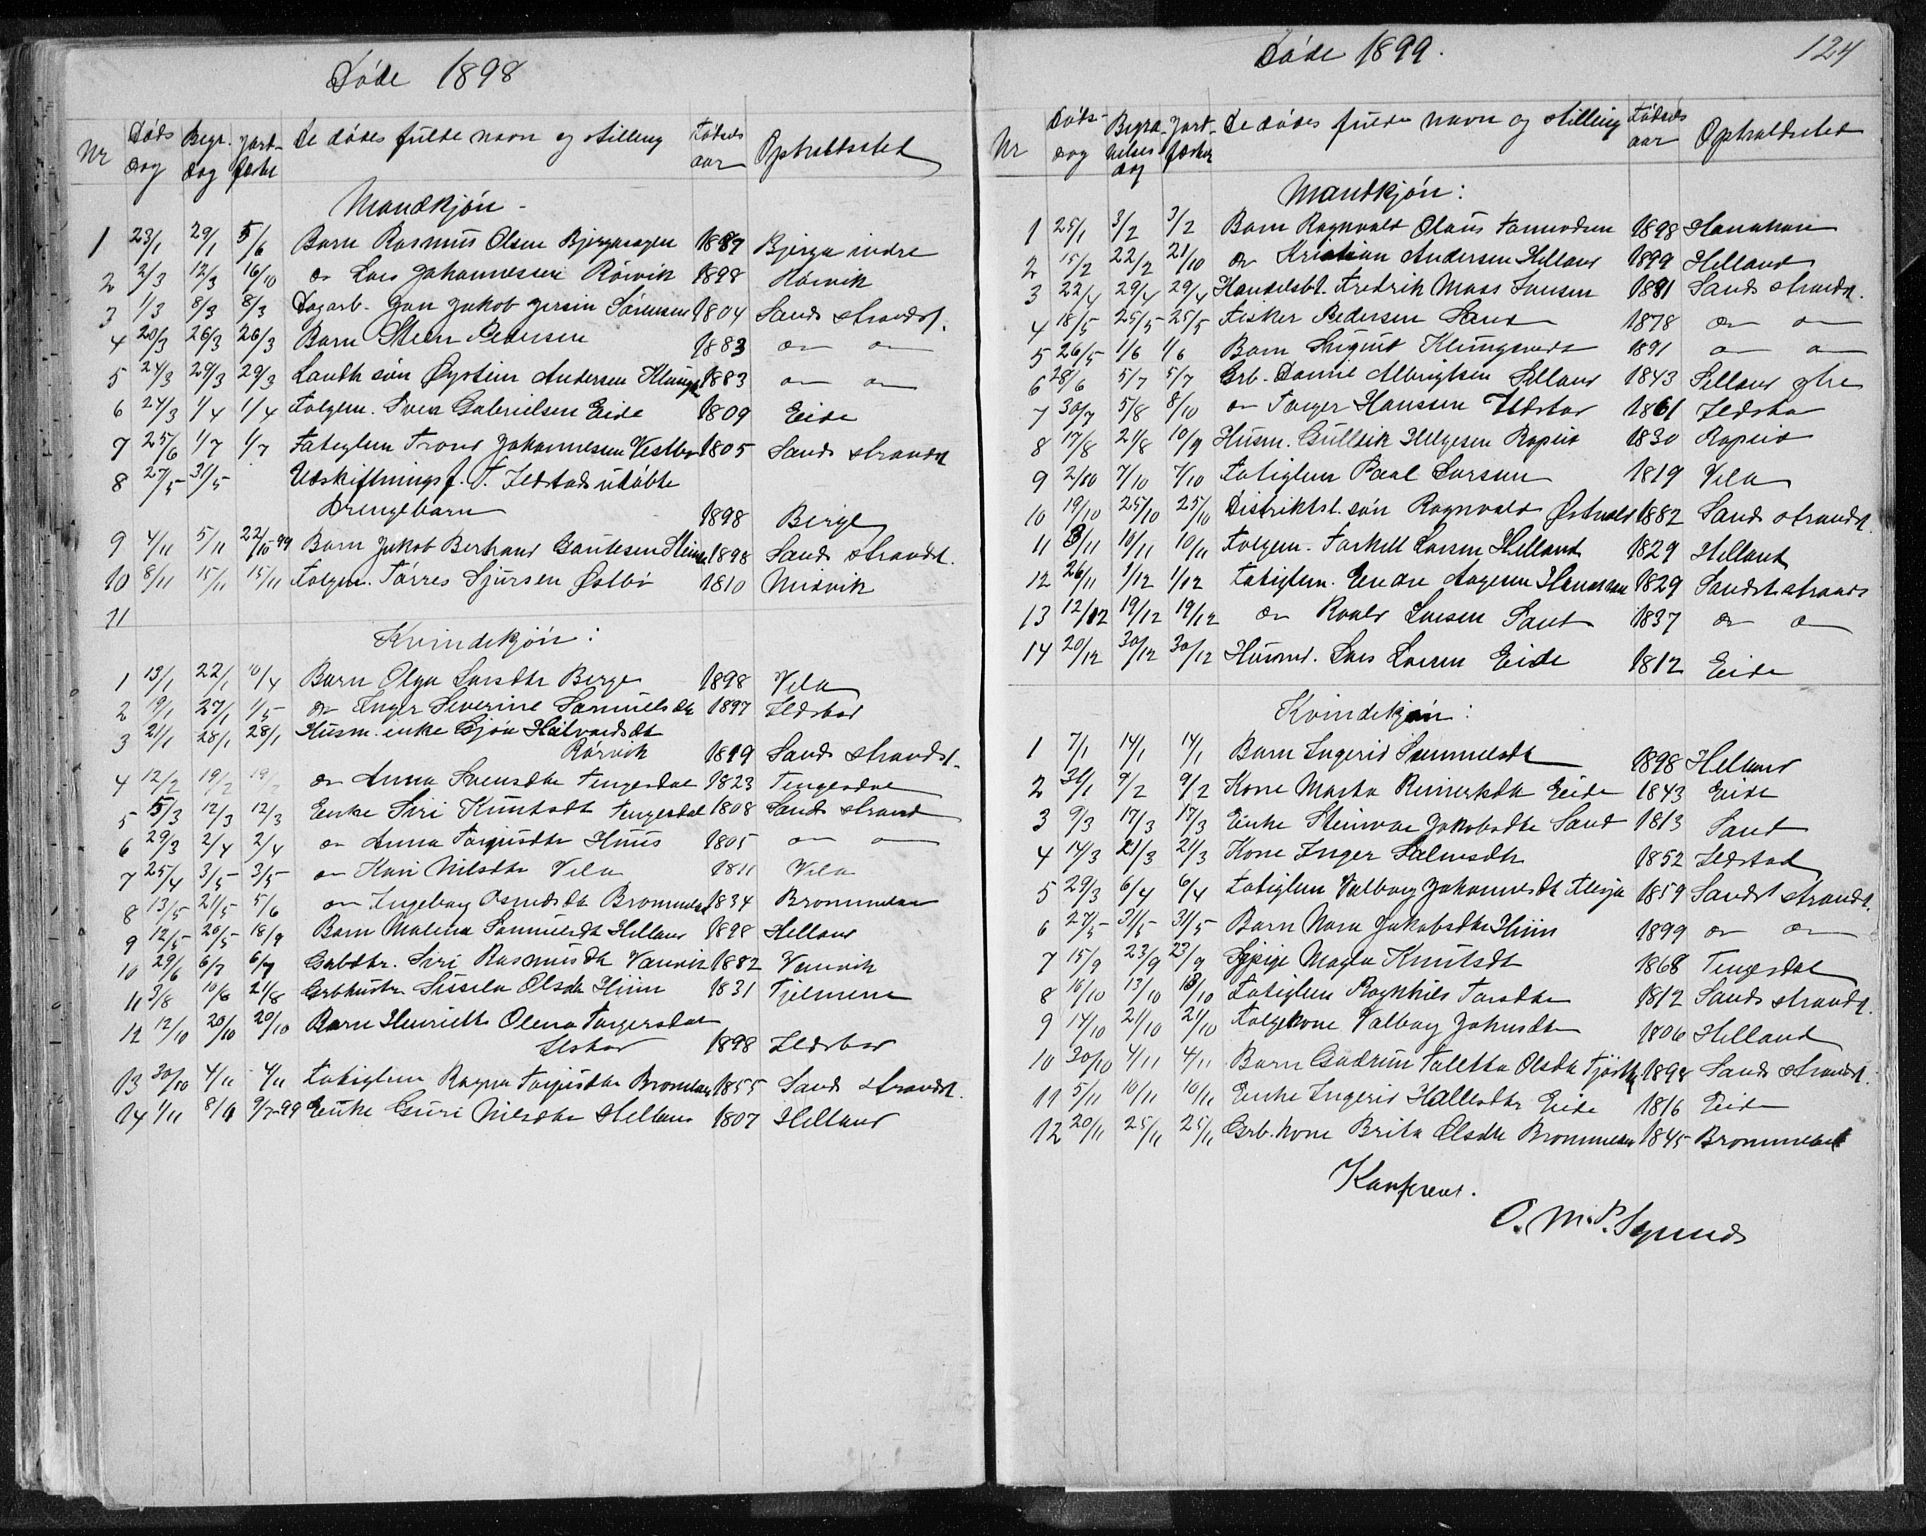 Døde 1898
Nr Døds dag Begr. dag Jordfæstet De dødes fulde navn og stilling Fødselsaar Opholdssted
Mandkjön -
1 23/1 29/1 5/6 Barn Rasmus Olsen Bjergesagen 1887 Bjerga indre
2 2/3 12/3 16/10 do Lars Johannessen Rörvik 1898 Rörvik
3 1/3 8/3 8/3 Dagarb. Jan Jakob Jersin Sörensen 1804 Sands strandst.
4 20/3 26/3 26/3 Barn Steen Pedersen 1883 do do
5 24/3 29/3 29/3 Landh. sön Øystein Andersen 1883 do do
6 24/3 1/4 1/4 Folgem. Sven Gabrielsen Eide 1809 Eide
7 25/6 1/7 1/7 Fatiglem Trond Johannesen Vestbö 1805 Sands strandst
8 27/5 31/5 Udskiftningsf. T. Ilstads udöbte
Drengebarn 1898 Berge
9 4/11 5/11 22/10-99 Barn Jakob Bertrand Gautesen 1898 Sands strandst.
10 8/11 15/11 15/11 Folgem. Törres Sjursen Østbö 1810 Midvik
11
Kvindekjön:
1 13/1 22/1 10/4 Barn Olga Larsdtr Berge 1898 Vela
2 19/1 27/1 1/5 do Inger Severine Samuelsdtr 1897 Ilstad
3 21/1 28/1 28/1 Husm. enke Gjön Halvardsdt
Rörvik 1819 Sands strandst.
4 12/2 19/2 19/2 do Anna Svensdtr Tengesdal 1823 Tengesdal
5 5/3 12/3 12/3 Enke Siri Knutsdt Tengesdal 1808 Sands strand
6 29/3 2/4 2/4 do Anna Torjusdtr Huus 1805 do do
7 25/4 3/5 3/5 do Kari Nilsdtr Vela 1811 Vela
8 13/5 21/5 5/6 do Ingeborg Osmdsdtr Brommeland 1834 Brommeland
9 12/5 20/5 18/9 Barn Malena Samuelsdt Helland 1898 Helland
10 29/6 6/7 6/7 Gaardbr. Siri Rasmusdt Vanvik 1882 Vanvik
11 3/8 10/8 21/8 Grbhustr. Sissela Olsdtr Hiim 1831 Fjelmene
12 12/10 20/10 20/10 Barn Henriette Olena Torgersdat
Ilstad 1898 Ilstad
13 30/10 4/11 4/11 Fatiglem Ragna Torjusdtr Brommeland 1855 Sands strandst.
14 1/11 8/11 9/7-99 Enke Guri Nilsdtr Helland 1807 Helland
Døde 1899. 124
Nr Dødsdag Begravelsesdag Jordfæstet De dødes fulde navn og stilling Fødselsaar Opholdssted
Mandkjön:
1 25/1 3/2 3/2 Barn Ragnvald Olaus 1898
2 15/2 22/2 21/10 do Kristian Andersen Helland 1899 Helland
3 22/4 29/4 29/4 Handelsbt. Fredrik Moss Jansen 1881 Sands strandst.
4 18/5 25/5 25/5 Fisker Pedersen Sand 1878 do do
5 26/5 1/6 1/6 Barn Sigurd Klungnæs 1891 do do
6 28/6 5/7 5/7 Grb. Daniel Albrigtsen Selland 1843 Selland ytre
7 30/7 5/8 8/10 do Torger Hansen Ilstad 1861 Ilstad
8 17/8 21/8 10/9 Husm. Gullik Helgesen Ropeid 1830 Ropeid
9 2/10 7/10 7/10 Fatiglem Paal Larsen 1819 Vela
10 19/10 25/10 25/10 Distriktsl. sön Ragnvald 1882 Sands strandst.
11 3/11 10/11 10/11 Folgem. Torkell Larsen Helland 1829 Helland
12 26/11 1/12 1/12 Fatiglem. Endre Aagesen 1829 Sandst strands
13 12/12 19/12 19/12 do Roald Larsen Sand 1837 do do
14 20/12 30/12 30/12 Husmd. Lars Larsen Eide 1812 Eide
Kvindekjön:
1 7/1 14/1 14/1 Barn Ingerid Samuelsdt 1898 Helland
2 31/1 9/2 9/2 Kone Marta Reinertsdtr Eide 1843 Eide
3 9/3 17/3 17/3 Enke Steinvor Jakobsdtr Sand 1813 Sand
4 14/3 21/3 21/3 Kone Inger Salvesdtr 1852 Ilstad
5 29/3 6/4 6/4 Fatiglem Valborg Johannesdt 1859 Sandst strandst.
6 27/5 31/5 31/5 Barn Nora Jakobsdtr Hiim 1899 do do
7 15/9 23/9 23/9 Pige Magla Knutsdt 1868 Tengesdal
8 10/10 13/10 13/10 Fatiglem Ragnhild Torsdtr 1812 Sands strandst.
9 14/10 21/10 21/10 Folgekone Valborg Johnsdtr 1806 Helland
10 30/10 4/11 4/11 Barn Gudrun Taletta Olsdtr 1898 Sands strandst.
11 5/11 10/11 10/11 Enke Ingerid Hallesdtr Eide 1816 Eide
12 20/11 25/11 25/11 Grb. kone Brita Olsdtr Brommeland 1845 Brommeland
Konfereret.